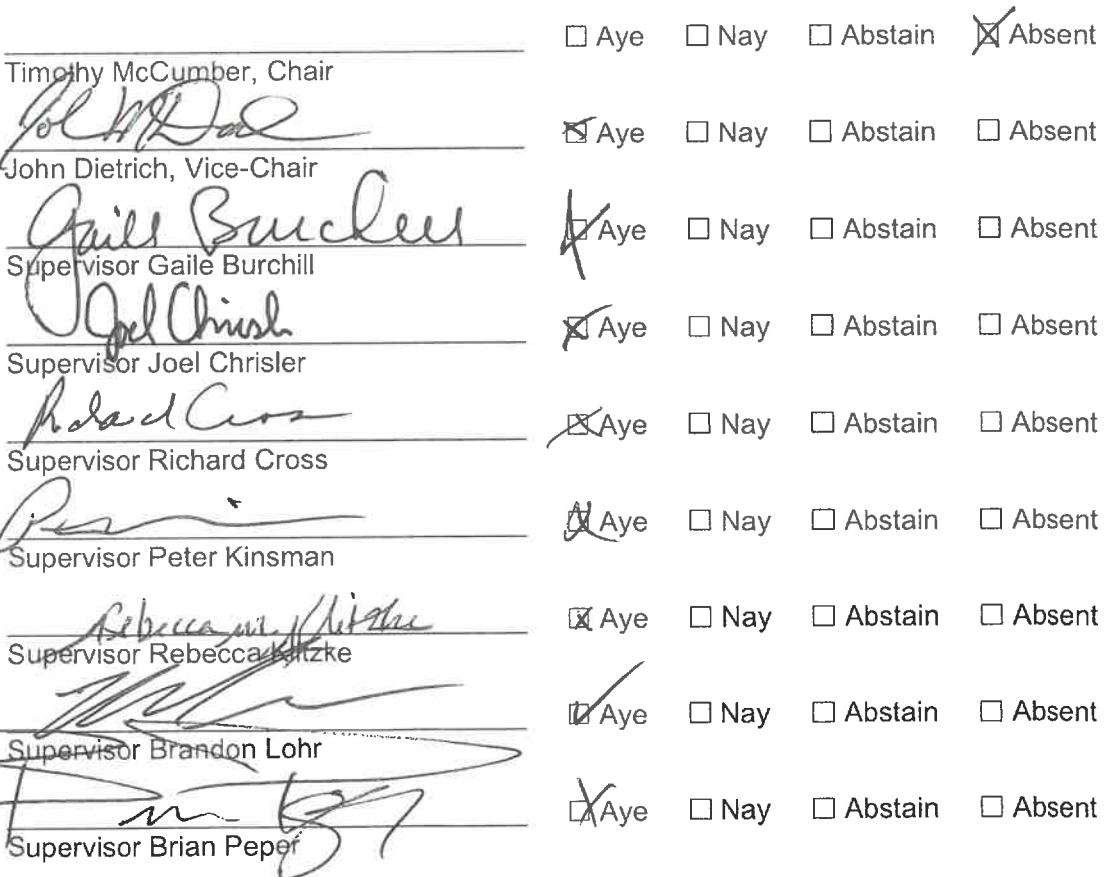 ☐ Aye ☐ Nay ☐ Abstain ☒ Absent
Timothy McCumber, Chair
☒ Aye ☐ Nay ☐ Abstain ☐ Absent
John Dietrich, Vice-Chair
Gaile Burchill
☒ Aye ☐ Nay ☐ Abstain ☐ Absent
Supervisor Gaile Burchill
Joel Chrisler
☒ Aye ☐ Nay ☐ Abstain ☐ Absent
Supervisor Joel Chrisler
Cross
☒ Aye ☐ Nay ☐ Abstain ☐ Absent
Supervisor Richard Cross
☒ Aye ☐ Nay ☐ Abstain ☐ Absent
Supervisor Peter Kinsman
Rebecca M. Klitzke
☒ Aye ☐ Nay ☐ Abstain ☐ Absent
Supervisor Rebecca Klitzke
☒ Aye ☐ Nay ☐ Abstain ☐ Absent
Supervisor Brandon Lohr
☒ Aye ☐ Nay ☐ Abstain ☐ Absent
Supervisor Brian Peper